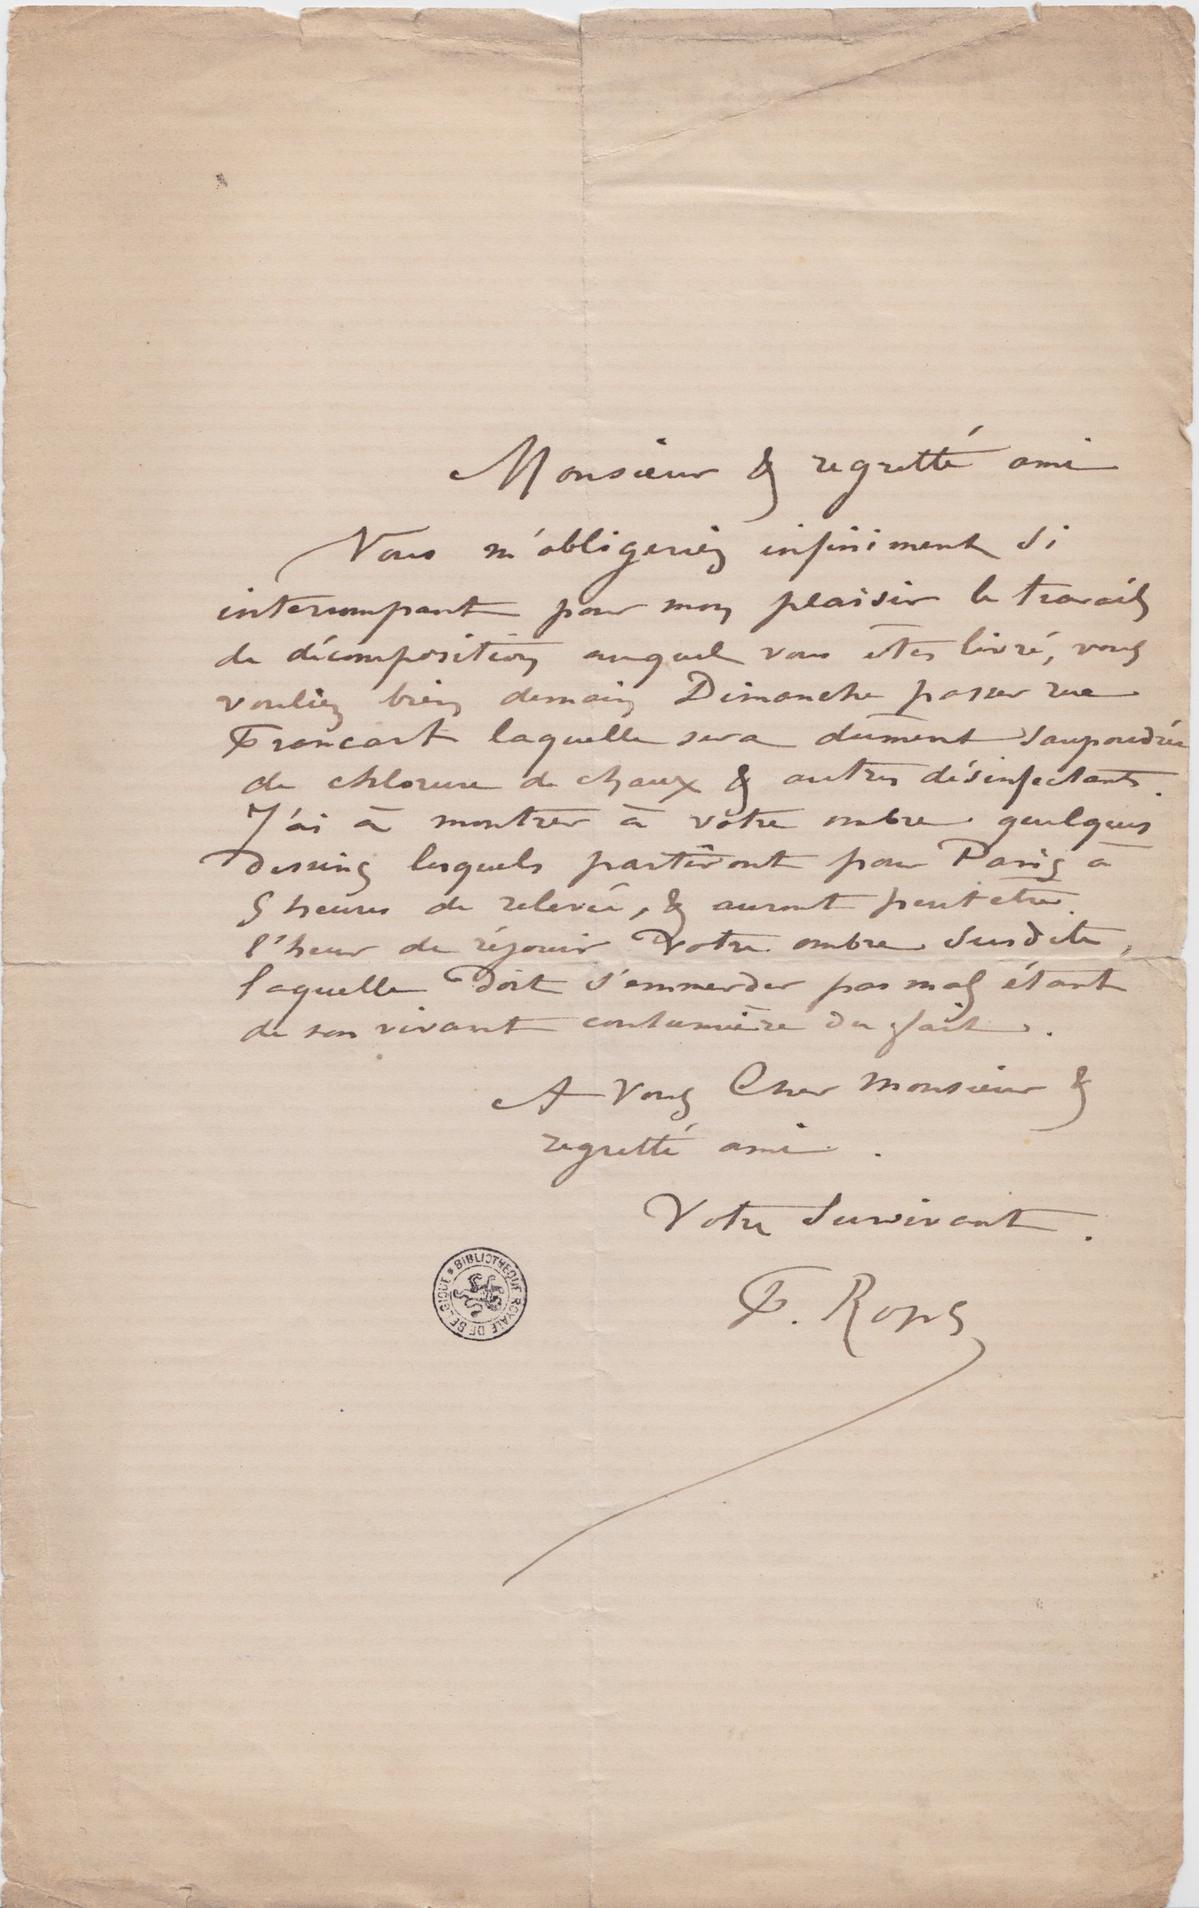 Monsieur & regretté ami
Vous m'obligeriez infiniment si
interrompant pour mon plaisir le travail
de décomposition auquel vous êtes livré, vous
vouliez bien demain Dimanche passer rue
Francart laquelle sera dûment saupoudrée
de chlorure de chaux & autres désinfectants.
J'ai à montrer à votre ombre quelques
dessins lesquels partiront pour Paris à
5 heures de relevée, & auront peut etre
l'heur de réjouir Votre ombre susdite,
laquelle doit s'emmerder pas mal étant
de son vivant coutumière du fait.
A Vous Cher Monsieur &
regretté ami.
Votre Survivant.
F. Rops
BIBLIOTHEQUE ROYALE DE BELGIQUE